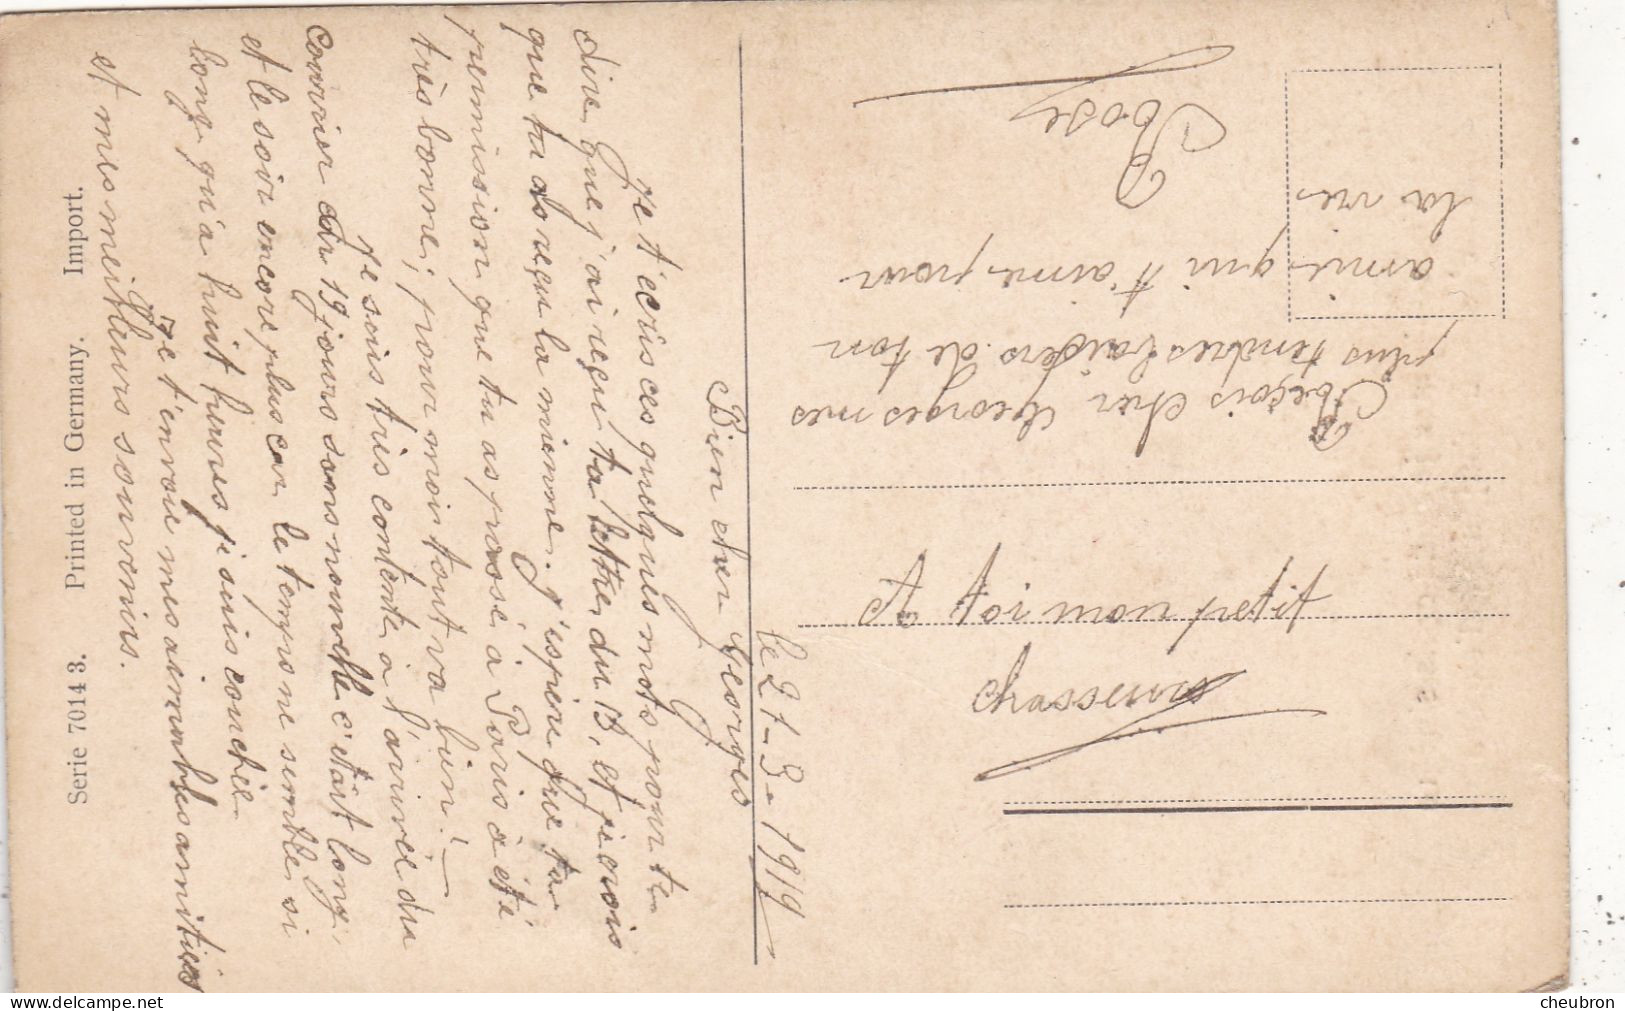 le 21-3-1919
Bien cher Georges
Je t'ecris ces quelques mots pour te
dire que j'ai reçu ta lettre du 13, et je crois
que tu as reçu la mienne. j'espère que ta
permission que tu as passé à Paris a été
très bonne, pour moi tout va bien. —
Je suis très contente à l'arrivée du
courrier car 19 jours sans nouvelle c'était long,
et le soir encore plus car le temps me semble si
long qu'a huit heures je suis couchée
Je t'envoie mes aimables amitiés
et mes meilleurs souvenirs.
Reçois cher Georges mes
plus tendres baisers de ton
amie qui t'aime pour
la vie
Rose
Serie 7014 3. Printed in Germany. Import.
cheubron